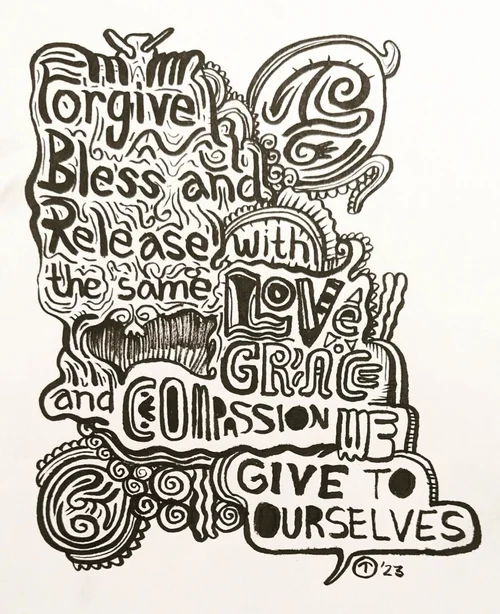 Forgive
Bless and
Release with
the same LOVe
GRACE
and COMPASSION WE
GIVE TO
OURSELVES
T '23